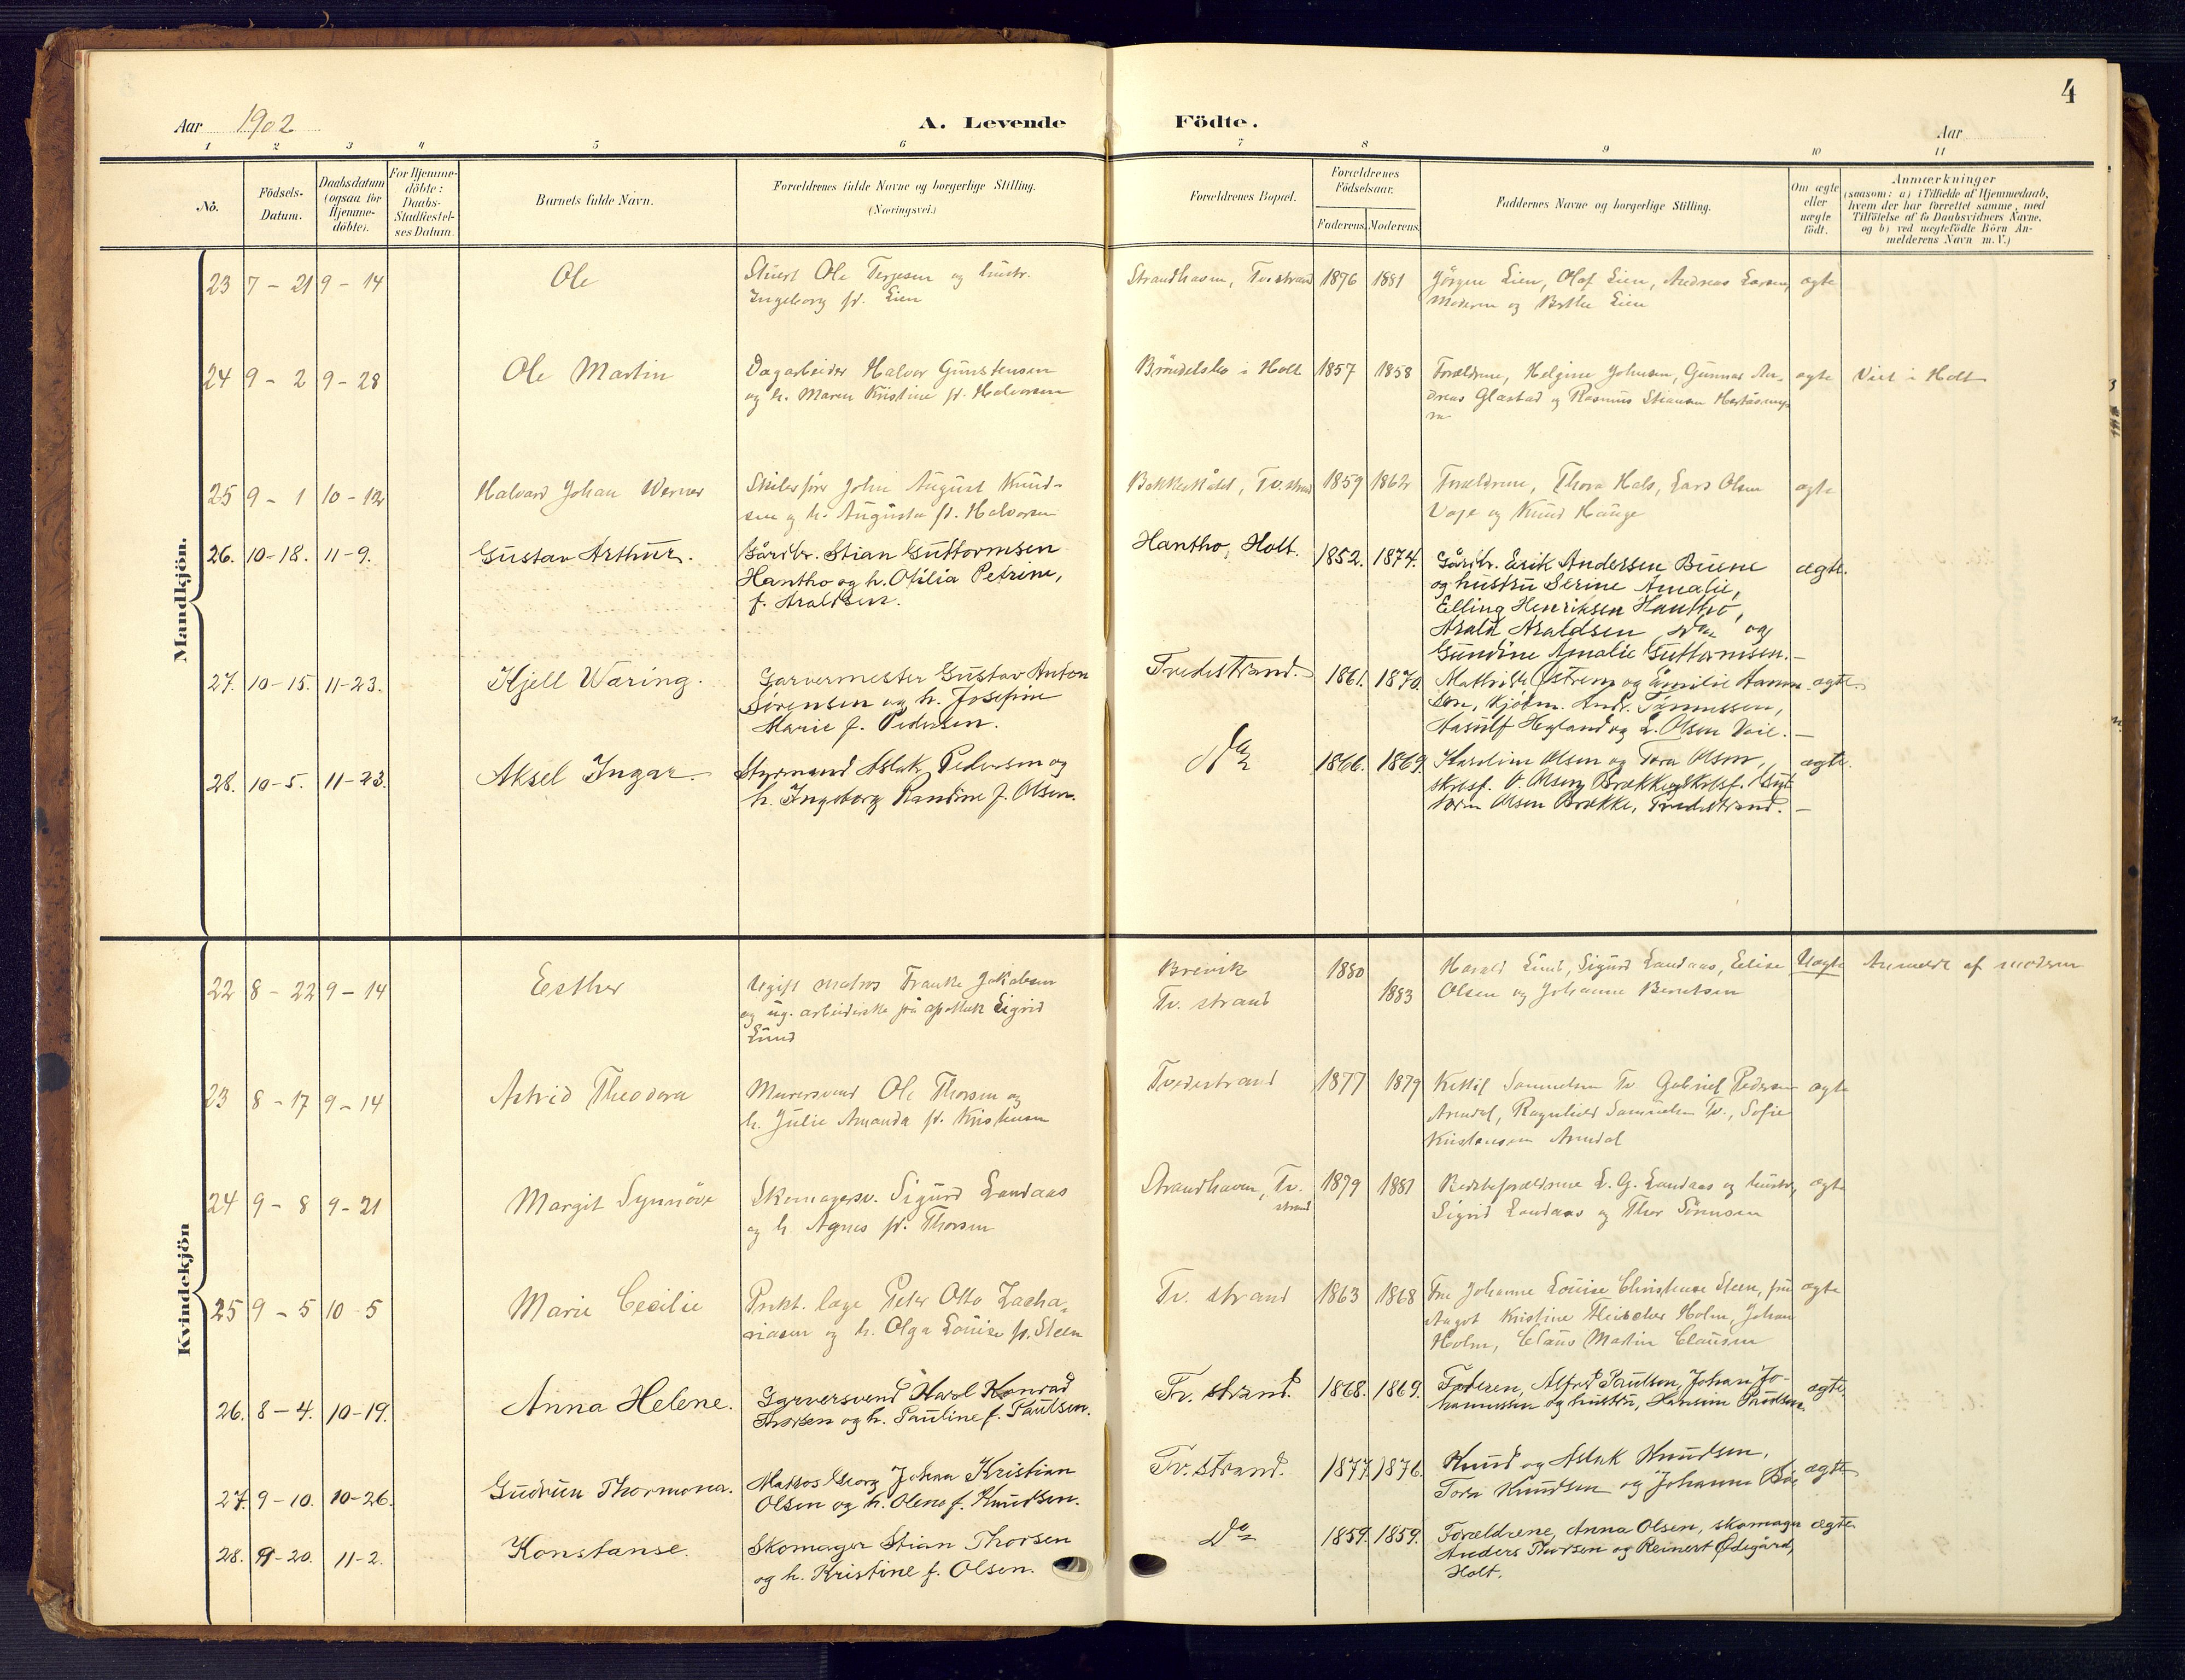 4
Aar 1902
A. Levende Födte.
Aar
1 2 3 4 5 6 7 8 9 10 11
No.
Födsels-Datum.
Daabsdatum (ogsaa for Hjemme-döbte).
For Hjemme-döbte: Daabs-Stadfæstel-ses Datum.
Barnets fulde Navn.
Forældrenes fulde Navne og borgerlige Stilling.
(Næringsvei.)
Forældrenes Bopæl.
Forældrenes Födselsaar.
Faderens. Moderens.
Faddernes Navne og borgerlige Stilling.
Om ægte eller uægte født.
Anmærkninger
(saasom: a) i Tilfælde af Hjemmedaab,
hvem der har forrettet samme, med
Tilföielse af to Daabsvidners Navne,
og b) ved uægtefödte Börn An-
melderens Navn m. V.)
Mandkjön.
23 7 - 21 9 - 14 Ole Stuert Ole Terjesen og hustr. Strandhaven, Tvedestrand 1876 1881 Jörgen Lien, Olaf Lien, Andreas Larsen, ægte
Ingeborg f. Lien Moderen og Berthe Lien
24 9 - 2 9 - 28 Ole Martin Dagarbeider Halvor Gunstensen i Holt 1857 1858 Forældrene, Helgine Johnsen, Gunnar An- ægte Viet i Holt
og h. Maren Kristine f. Halvorsen dreas Glastad og Rasmus Stiansen
25 9 - 1 10 - 12 Halvard Johan Werner Skibsfører John August Knud- Tv.strand 1859 1862 Forældrene, Thora Hals, Lars Olsen ægte
sen og h. Augusta f. Halvorsen Voje og Knud Hauge
26. 10-18. 11-9. Gustav Arthur. Gårdbr. Stian Guttormsen Hantho, Holt. 1852. 1874. Gårdbr. Erik Andersen Buene ægte.
Hantho og h. Otilia Petrine, og hustru Serine Amalie,
f. Araldsen. Elling Henriksen Hantho,
Arald Araldsen og
Gundine Amalie Guttormsen.
27. 10-15. 11-23. Kjell Waring. Garvermester Gustav Anton Tvedestrand. 1861. 1870. Mathilde Østrem og Emilie Aanon- ægte.
Sørensen og h. Josefine sen, Kjøbm. Andr. Tønnessen,
Marie f. Pedersen. Aasulf Hegland og L. Olsen Voie.
28. 10-5. 11-23. Aksel Ingar. Styrmand Aslak Pedersen og Do 1866. 1869. Karoline Olsen og Tora Olsen, ægte.
h. Ingeborg Randine f. Olsen. skibsf. O. Olsen Brække og skibsf.
Olsen Brække, Tvedestrand.
Kvindekjön
22 8 - 22 9 - 14 Esther Ugift matros Franke Jakobsen Brevik 1880 Harald Lund, Sigurd Landaas, Elise Uægte Anmeldt af moderen
og ug. arbeiderske på apothek Sigrid Tv. strand 1883 Olsen og Johanne Berntsen
Lund
23 8 - 17 9 - 14 Astrid Theodora Murersvend Ole Thorsen og Tvedestrand 1877 1879 Kittil Samuelsen Tv. Gabriel Pedersen ægte
h. Julie Amanda f. Kristensen Arendal, Ragnhild Samuelsen Tv., Sofie
Kristensen Arendal
24 9 - 8 9 - 21 Margit Synnöve Skomagersv. Sigurd Landaas Strandhaven, Tv. strand 1879 1881 Bedsteforældrene L. G. Landaas og hustru, ægte
og h. Agnes f. Thorsen Sigrid Landaas og Thor Sörensen
25 9 - 5 10 - 5 Marie Cecilie Prakt. læge Peter Otto Zacha- Tv. strand 1863 1868 Fru Johanne Louise Christense Steen, fru ægte
riasen og h. Olga Louise f. Steen Aagot Kristine Fleischer Holm, Johan
Holm, Claus Martin Clausen
26. 8 - 4. 10-19. Anna Helene. Garversvend Karl Konrad Tv. strand. 1868. 1869. Faderen, Alfred Paulsen, Johan Jo- ægte.
Thorsen og h. Pauline f. Paulsen. hannessen og hustru, Hansine Paulsen.
27. 9-10. 10-26. Gudrun Thormona. Matros Georg Johan Kristian Tv. strand. 1877. 1876. Knud og Aslak Knudsen, ægte
Olsen og h. Olene f. Knudsen. Tora Knudsen og Johanne Bö
28. 9-20. 11-2. Konstanse. Skomager Stian Thorsen Do 1859. 1859. Forældrene, Anna Olsen, skomager ægte
og h. Kristine f. Olsen. Anders Thorsen og Reinert Ødegård,
Holt.